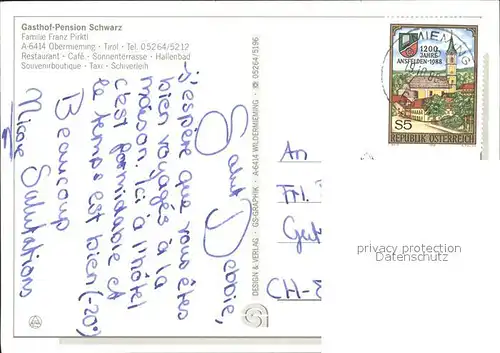 Gasthof-Pension Schwarz
Familie Franz Pirktl
A-6414 Obermieming · Tirol · Tel. 05264/5212
Restaurant · Café · Sonnenterrasse · Hallenbad
Souvenirboutique · Taxi · Schiverleih
Salut Debbie,
j'espère que vous êtes
bien voyagés à la
maison. Ici à l'hôtel
c'est formidable et
le temps est bien (-20°)
Beaucoup
Salutations
Nicole
DESIGN & VERLAG · GS-GRAPHIK · A-6414 WILDERMIEMING · ✆ 05264/5196
MIEMING
1200
JAHRE
ANSFELDEN · 1988
S5
REPUBLIK ÖSTERREICH
An
Frl.
CH-
privacy protection
Datenschutz